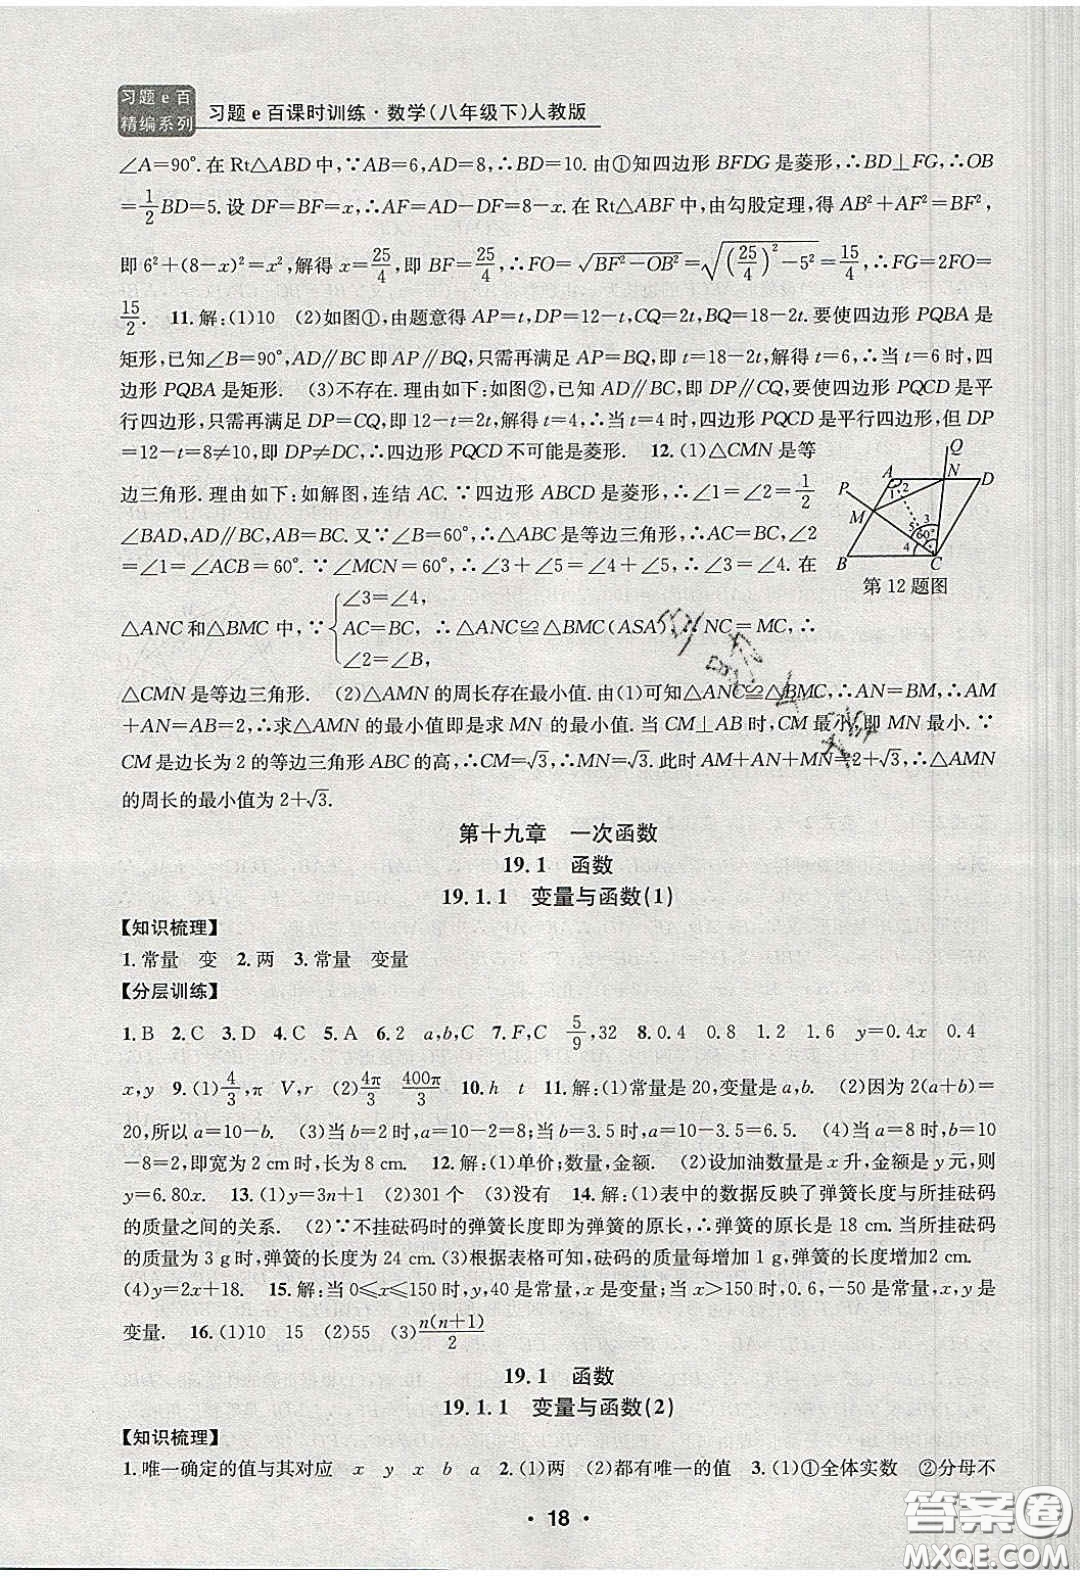 习题e百
精编系列
习题e百课时训练·数学(八年级下)人教版
∠A=90°.在Rt△ABD中,∵AB=6,AD=8,∴BD=10.由①知四边形BFDG是菱形,∴BD⊥FG,∴OB
=1/2BD=5.设DF=BF=x,∴AF=AD-DF=8-x.在Rt△ABF中,由勾股定理,得AB²+AF²=BF²,
即6²+(8-x)²=x²,解得x=25/4,即BF=25/4,∴FO=√(BF²-OB²)=√((25/4)²-5²)=15/4,∴FG=2FO=
15/2. 11.解:(1)10 (2)如图①,由题意得AP=t,DP=12-t,CQ=2t,BQ=18-2t.要使四边形PQBA是
矩形,已知∠B=90°,AD∥BC即AP∥BQ,只需再满足AP=BQ,即t=18-2t,解得t=6,∴当t=6时,四
边形PQBA是矩形. (3)不存在.理由如下:如图②,已知AD∥BC,即DP∥CQ,要使四边形PQCD是平
行四边形,只需再满足DP=CQ,即12-t=2t,解得t=4,∴当t=4时,四边形PQCD是平行四边形,但DP
=12-t=8≠10,即DP≠DC,∴四边形PQCD不可能是菱形. 12.(1)△CMN是等
边三角形.理由如下:如解图,连结AC.∵四边形ABCD是菱形,∴∠1=∠2=1/2
∠BAD,AD∥BC.又∵∠B=60°,∴△ABC是等边三角形,∴AC=BC,∠2
=∠1=∠ACB=60°.∵∠MCN=60°,∴∠3+∠5=∠4+∠5,∴∠3=∠4.在
∠3=∠4,
△ANC和△BMC中,∵{AC=BC, ∴△ANC≌△BMC(ASA),∴NC=MC,∴
∠2=∠B,
Q
A N D
P 1 2
M 5 3
60°
4
B C
第12题图
△CMN是等边三角形. (2)△AMN的周长存在最小值.由(1)可知△ANC≌△BMC,∴AN=BM,∴AM
+AN=AB=2,∴求△AMN的最小值即是求MN的最小值.当CM⊥AB时,CM最小,即MN最小.∵
CM是边长为2的等边三角形ABC的高,∴CM=√3,∴MN=√3.此时AM+AN+MN=2+√3,∴△AMN
的周长的最小值为2+√3.
第十九章 一次函数
19.1 函数
19.1.1 变量与函数(1)
【知识梳理】
1.常量 变 2.两 3.常量 变量
【分层训练】
1.B 2.C 3.D 4.C 5.A 6.2 a,b,C 7.F,C 5/9,32 8.0.4 0.8 1.2 1.6 y=0.4x 0.4
x,y 9.(1)4/3,π V,r (2)4π/3 400π/3 10.h t 11.解:(1)常量是20,变量是a,b. (2)因为2(a+b)=
20,所以a=10-b. (3)当b=2时,a=10-2=8;当b=3.5时,a=10-3.5=6.5. (4)当a=8时,b=10
-8=2,即宽为2 cm时,长为8 cm. 12.解:(1)单价;数量,金额. (2)设加油数量是x升,金额是y元,则
y=6.80x. 13.(1)y=3n+1 (2)301个 (3)没有 14.解:(1)表中的数据反映了弹簧长度与所挂砝码
的质量之间的关系. (2)∵不挂砝码时的弹簧长度即为弹簧的原长,∴弹簧的原长是18 cm.当所挂砝码
的质量为3 g时,弹簧的长度为24 cm.(3)根据表格可知,砝码的质量每增加1 g,弹簧的长度增加2 cm.
(4)y=2x+18. 15.解:当0≤x≤150时,y,40是常量,x是变量;当x>150时,0.6,-50是常量,x,y是
变量. 16.(1)10 15 (2)55 (3)n(n+1)/2
19.1 函数
19.1.1 变量与函数(2)
【知识梳理】
1.唯一确定的值与其对应 x y x b a 2.(1)两 (2)都有唯一的值 3.(1)①全体实数 ②分母不
· 18 ·
答案圈
MXQE.COM